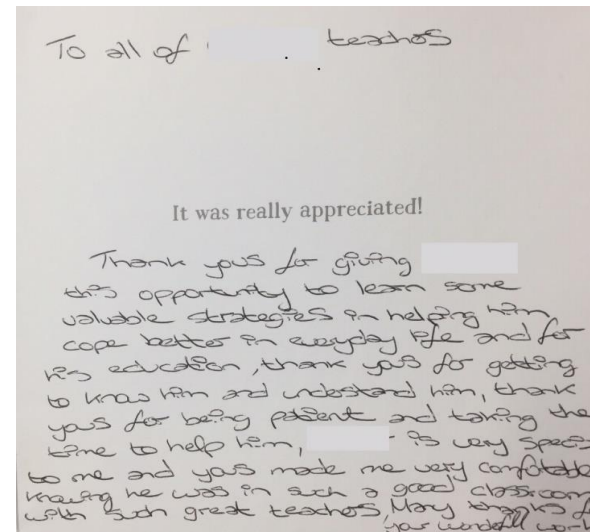 To all of teachos
It was really appreciated!
Thank yous for giving
this opportunity to learn some
valuable strategies in helping him
cope better in everyday life and for
his education, thank yous for getting
to know him and undestand him, thank
yous for being patient and taking the
time to help him, is very
to me and yous made me very
knowing he was in such a good classroom
with such great teachos, Many thanks
your wonderful